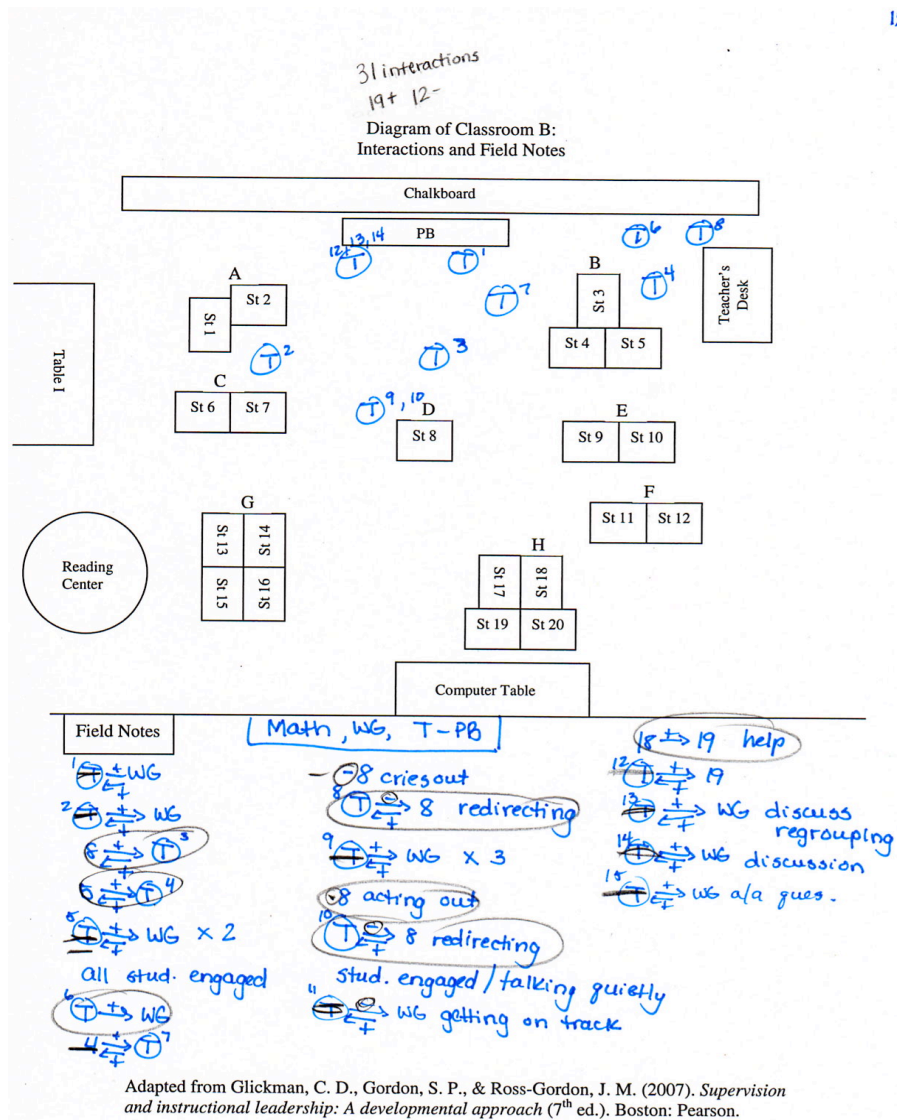 31 interactions
19+ 12-
Diagram of Classroom B:
Interactions and Field Notes
Chalkboard
PB
12+13,14 T
T 1
T 6
T 8
Teacher's
Desk
A
St 2
St 1
T 7
B
St 3
T 4
St 4 St 5
Table I
T 2
T 3
C
St 6 St 7
T 9, 10
D
St 8
E
St 9 St 10
F
St 11 St 12
G
St 13 St 14
St 15 St 16
Reading
Center
H
St 17 St 18
St 19 St 20
Computer Table
Field Notes
1 T + + WG
2 T + + WG
8 + + T 3
5 + + T 4
5 T + + WG x 2
all stud. engaged
6 T + WG
4 + + T 7
Math, WG, T-PB
- - 8 cries out
8 T - + 8 redirecting
9 T + + WG x 3
- 8 acting out
10 T - + 8 redirecting
stud. engaged / talking quietly
11 T - + WG getting on track
18 + 19 help
12 T + + 19
13 T + + WG discuss
regrouping
14 T + + WG discussion
15 T + + WG a/a ques.
Adapted from Glickman, C. D., Gordon, S. P., & Ross-Gordon, J. M. (2007). Supervision
and instructional leadership: A developmental approach (7th ed.). Boston: Pearson.